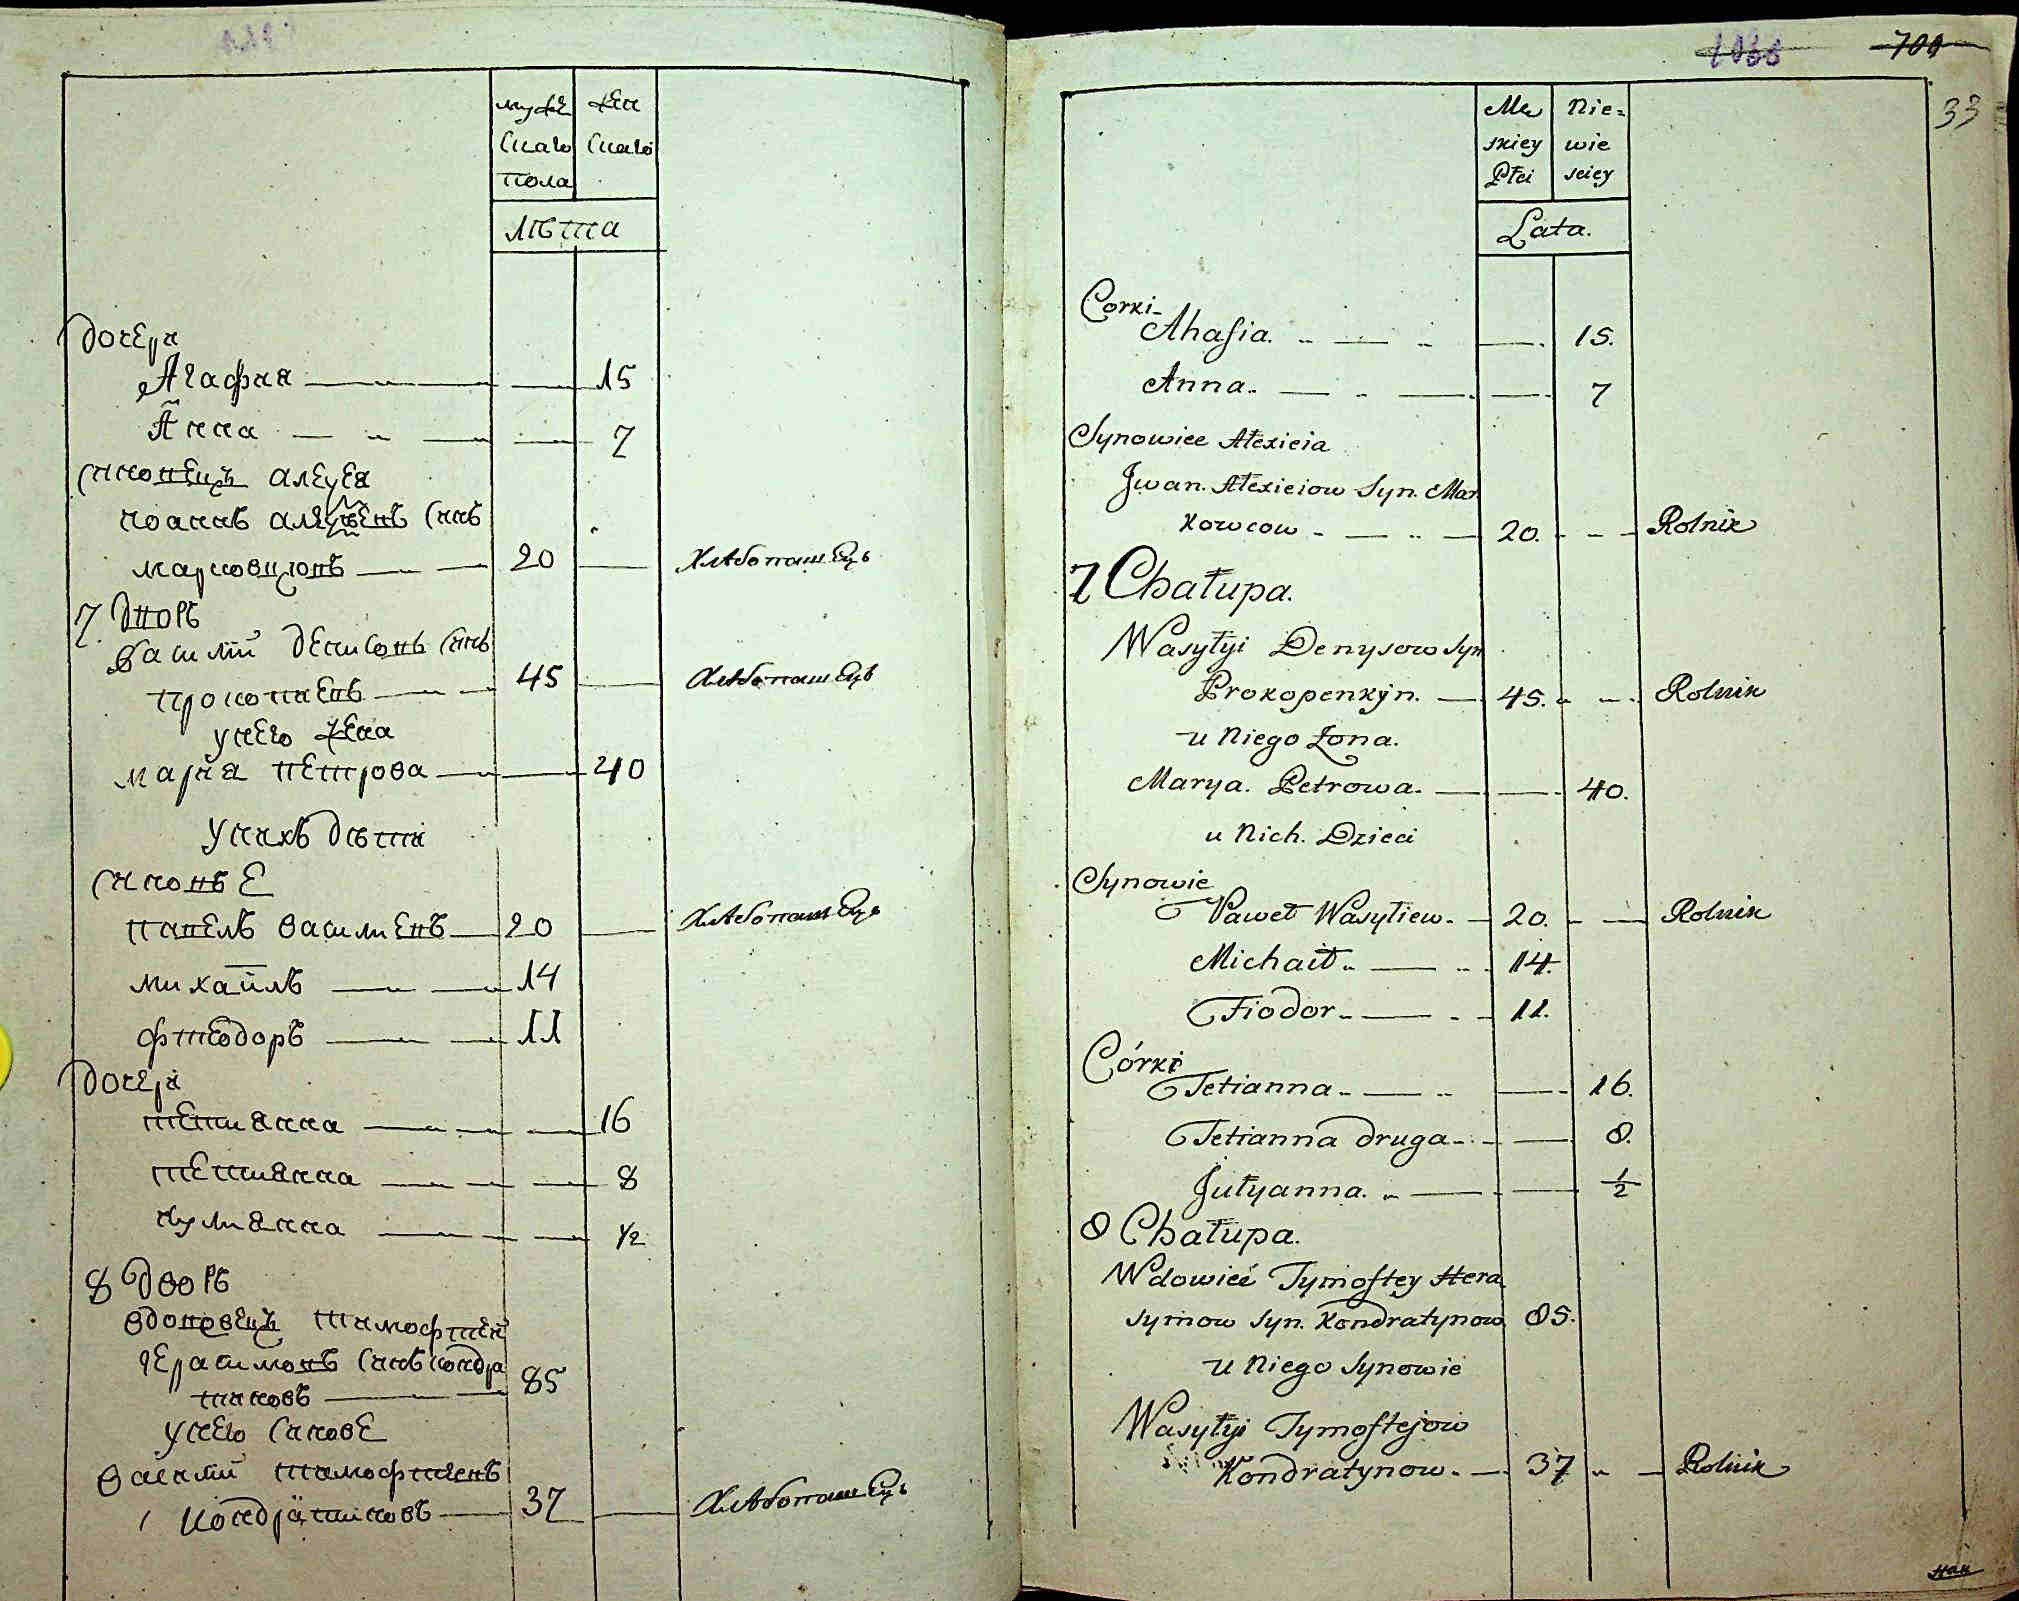 муже жен
скаго скаго
пола
лѣта
дочери
Агафия 15
Анна 7
синовецъ алеѯея
иоаннъ алеѯѣевъ синъ
марковцювъ 20 Хлѣбопашецъ
7 Дворъ
василій денисовъ синъ
прокопиевъ 45 Хлѣбопашецъ
у него жена
мария петрова 40
у нихъ дѣти
синовъе
павелъ василиевъ 20 Хлѣбопашецъ
михаилъ 14
фтеодоръ 11
дочери
тетианна 16
тетианна 8
иулианна 1/2
8 дворъ
вдовецъ тимофтей
герасимовъ синъ кондра
тиновъ 85
у него синове
василий тимофтиевъ
кондратиновъ 37 Хлѣбопашецъ
1066 709
33
Mę Nie=
skiey wie
Płci sciey
Lata.
Corki
Ahafia. 15.
Anna. 7
Synowiec Ałexieia
Jwan Ałexieiow Syn. Mar
kowcow 20. Rolnik
7 Chałupa.
Wasyłyi Denysow Syn
Prokopenkyn. 45. Rolnik
u Niego Żona.
Marya. Petrowa. 40.
u Nich. Dzieci
Synowie
Paweł Wasyliew. 20. Rolnik
Michaił 14.
Fiodor 11.
Córki
Tetianna 16.
Tetianna druga 8.
Jułyanna. 1/2
8 Chałupa.
Wdowieć Tymoftey Hera
symow Syn. Kondratynow 85.
u Niego Synowie
Wasyłyi Tymoftejow
Kondratynow. 37 Rolnik